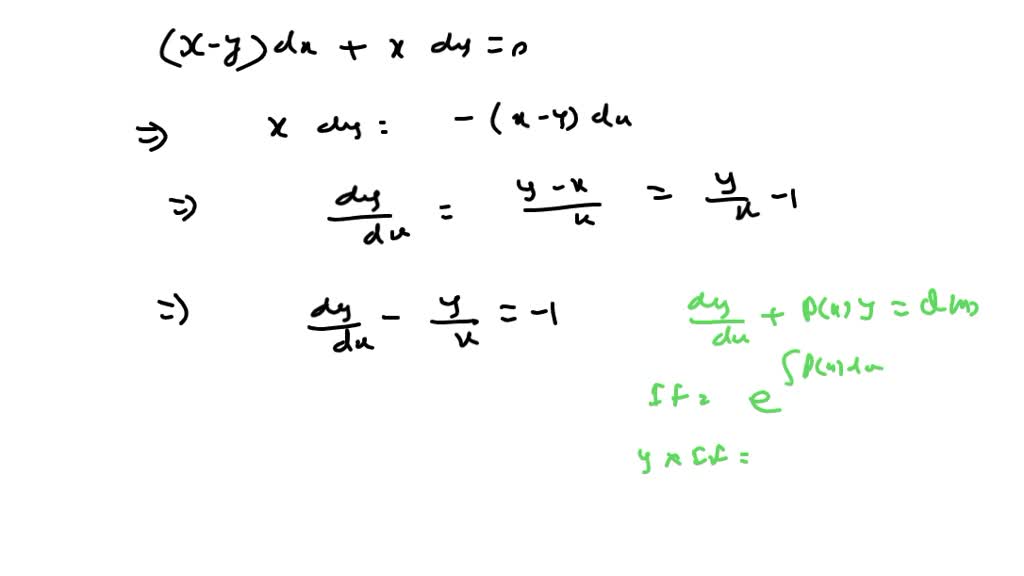 (x-y)dx + x dy = 0
⇒ x dy = -(x-y) dx
⇒ dy/dx = y-x/x = y/x -1
⇒ dy/dx - y/x = -1
dy/dx + P(x) y =
IF = e^∫P(x)dx
y × IF =